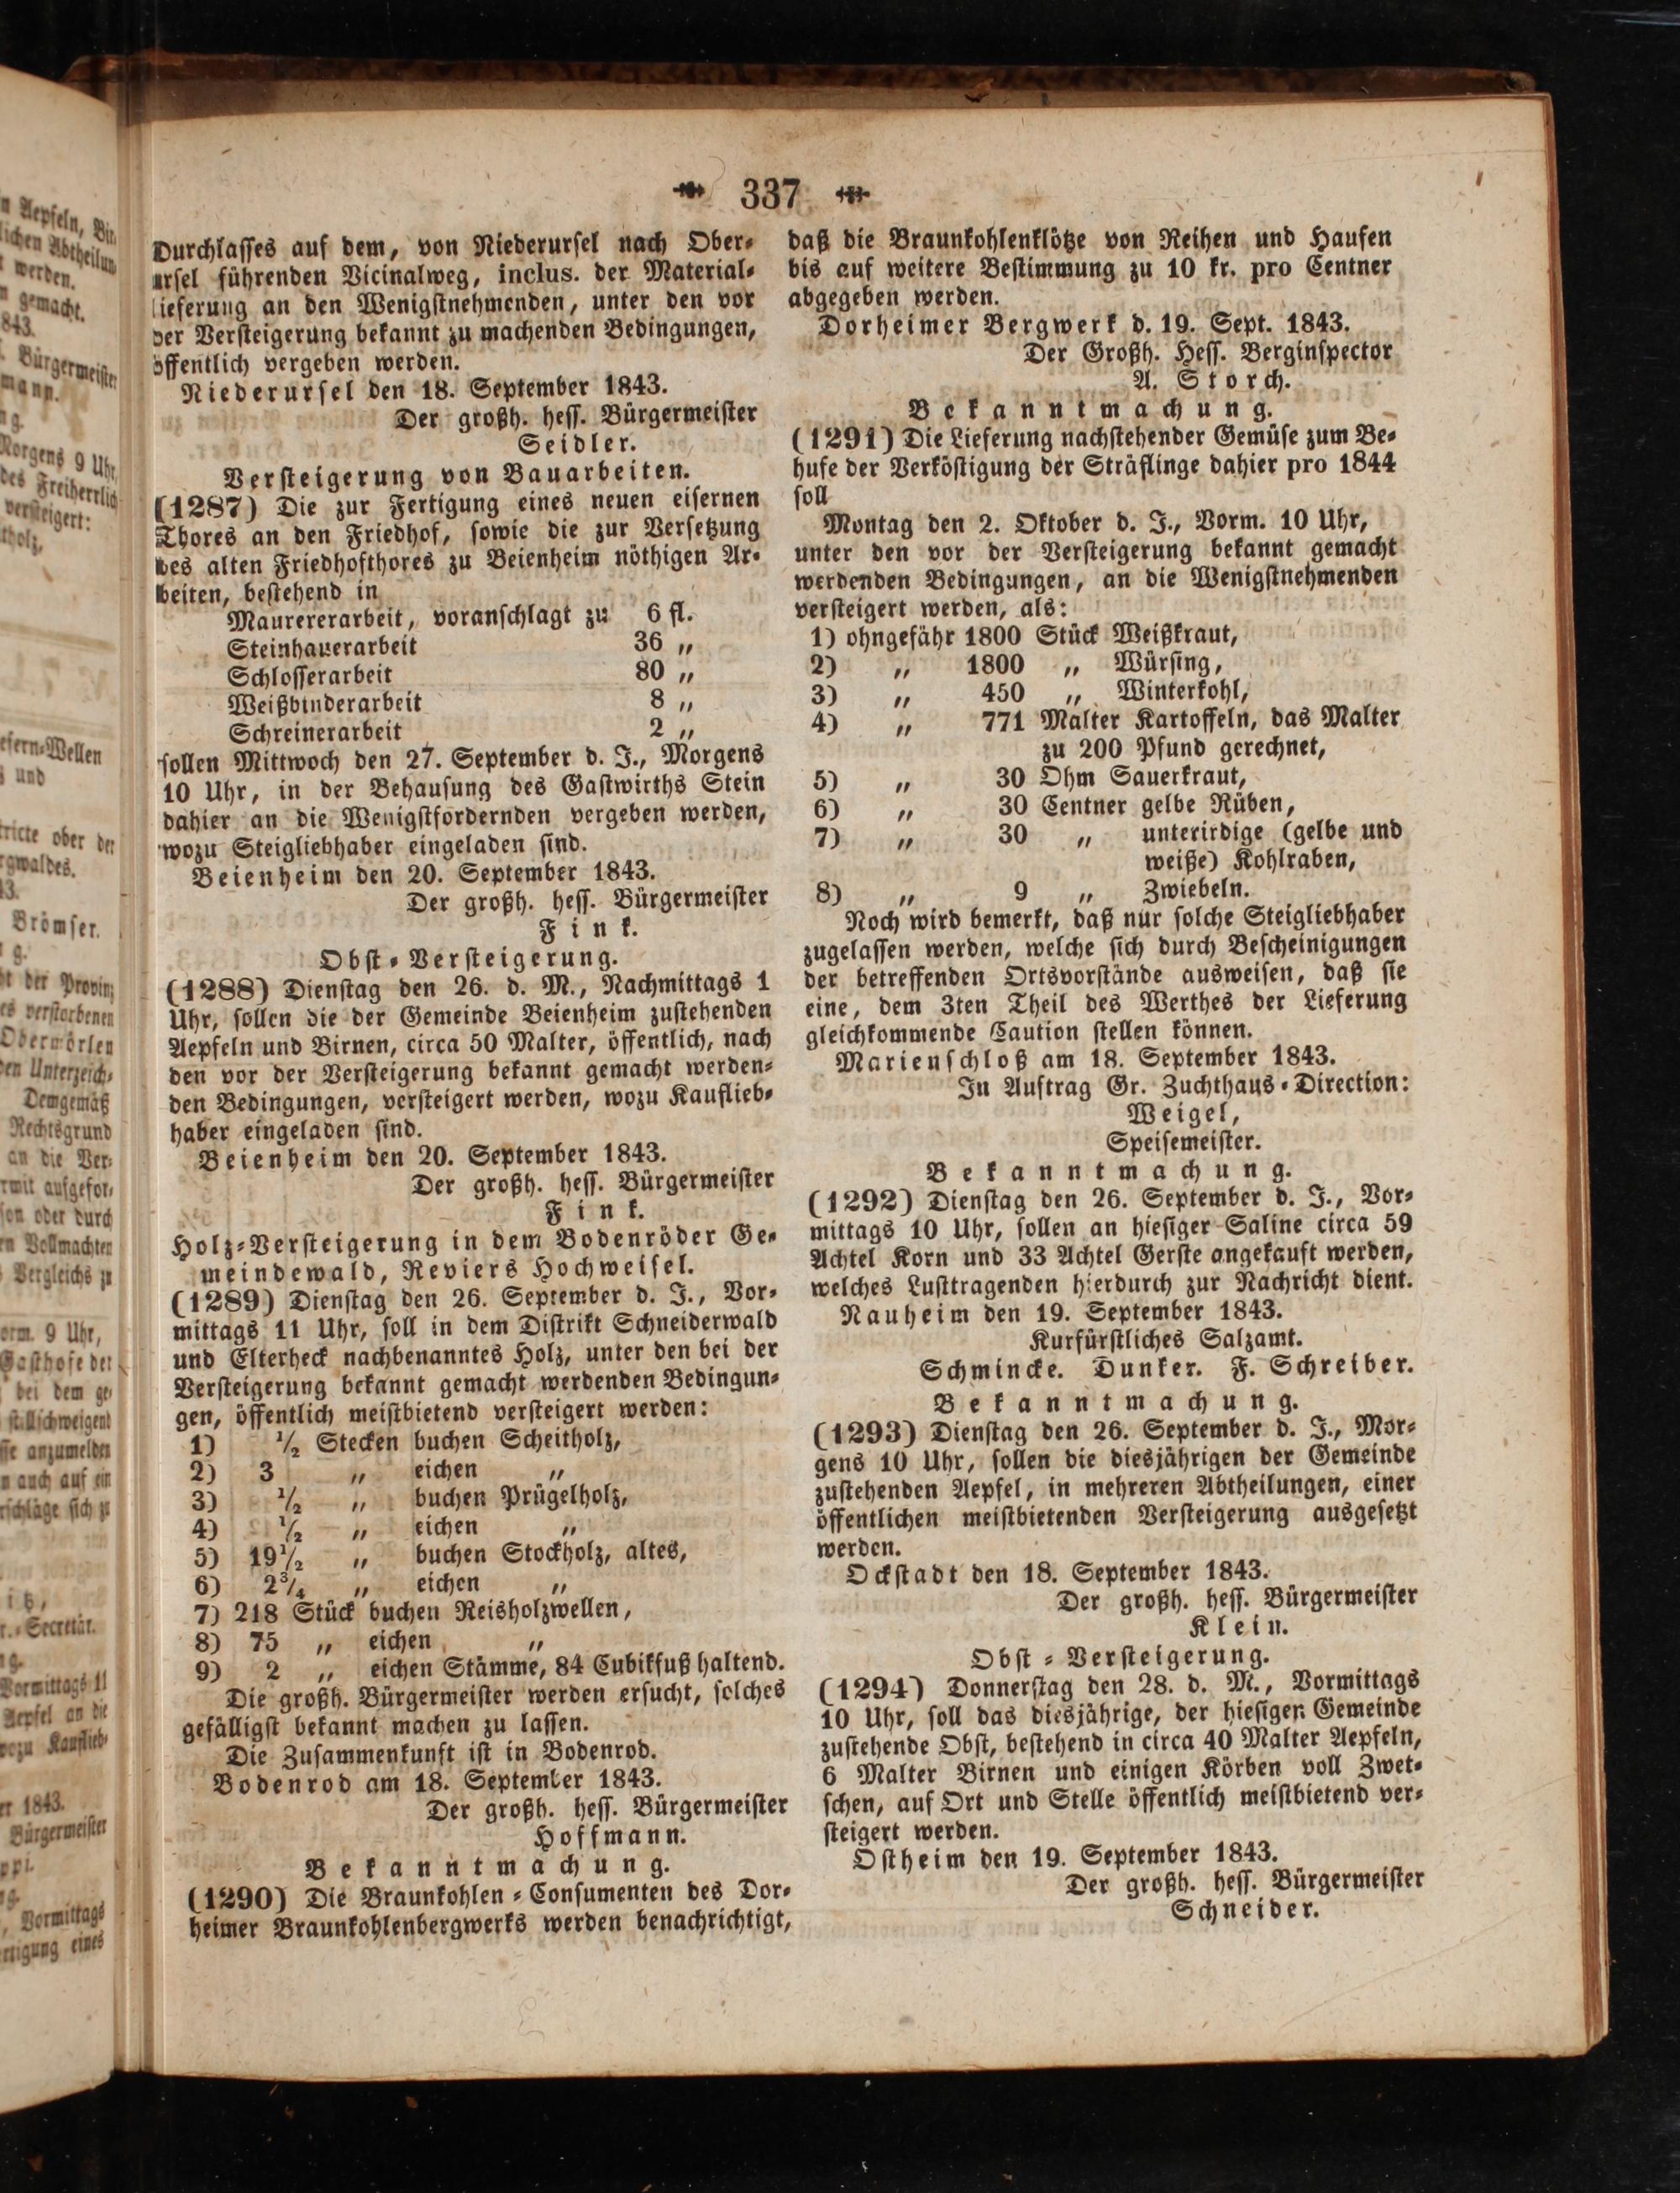 337
Durchlaſſes auf dem, von Niederurſel nach Ober-
urſel führenden Vicinalweg, inclus. der Material-
lieferung an den Wenigſtnehmenden, unter den vor
der Verſteigerung bekannt zu machenden Bedingungen,
öffentlich vergeben werden.
Niederurſel den 18. September 1843.
Der großh. heſſ. Bürgermeiſter
Seidler.
Verſteigerung von Bauarbeiten.
(1287) Die zur Fertigung eines neuen eiſernen
Thores an den Friedhof, ſowie die zur Verſetzung
des alten Friedhofthores zu Beienheim nöthigen Ar-
beiten, beſtehend in
Maurererarbeit, voranſchlagt zu 6 fl.
Steinhauerarbeit 36 „
Schloſſerarbeit 80 „
Weißbinderarbeit 8 „
Schreinerarbeit 2 „
ſollen Mittwoch den 27. September d. J., Morgens
10 Uhr, in der Behauſung des Gaſtwirths Stein
dahier an die Wenigſtfordernden vergeben werden,
wozu Steigliebhaber eingeladen ſind.
Beienheim den 20. September 1843.
Der großh. heſſ. Bürgermeiſter
Fink.
Obſt-Verſteigerung.
(1288) Dienſtag den 26. d. M., Nachmittags 1
Uhr, ſollen die der Gemeinde Beienheim zuſtehenden
Aepfeln und Birnen, circa 50 Malter, öffentlich, nach
den vor der Verſteigerung bekannt gemacht werden-
den Bedingungen, verſteigert werden, wozu Kauflieb-
haber eingeladen ſind.
Beienheim den 20. September 1843.
Der großh. heſſ. Bürgermeiſter
Fink.
Holz-Verſteigerung in dem Bodenröder Ge-
meindewald, Reviers Hochweiſel.
(1289) Dienſtag den 26. September d. J., Vor-
mittags 11 Uhr, ſoll in dem Diſtrikt Schneiderwald
und Elterheck nachbenanntes Holz, unter den bei der
Verſteigerung bekannt gemacht werdenden Bedingun-
gen, öffentlich meiſtbietend verſteigert werden:
1) ½ Stecken buchen Scheitholz,
2) 3 „ eichen „
3) ½ „ buchen Prügelholz,
4) ½ „ eichen „
5) 19½ „ buchen Stockholz, altes,
6) 2¾ „ eichen „
7) 218 Stück buchen Reisholzwellen,
8) 75 „ eichen „
9) 2 „ eichen Stämme, 84 Cubikfuß haltend.
Die großh. Bürgermeiſter werden erſucht, ſolches
gefälligſt bekannt machen zu laſſen.
Die Zuſammenkunft iſt in Bodenrod.
Bodenrod am 18. September 1843.
Der großh. heſſ. Bürgermeiſter
Hoffmann.
Bekanntmachung.
(1290) Die Braunkohlen-Conſumenten des Dor-
heimer Braunkohlenbergwerks werden benachrichtigt,
daß die Braunkohlenklötze von Reihen und Haufen
bis auf weitere Beſtimmung zu 10 kr. pro Centner
abgegeben werden.
Dorheimer Bergwerk d. 19. Sept. 1843.
Der Großh. Heſſ. Berginſpector
A. Storch.
Bekanntmachung.
(1291) Die Lieferung nachſtehender Gemüſe zum Be-
hufe der Verköſtigung der Sträflinge dahier pro 1844
ſoll
Montag den 2. Oktober d. J., Vorm. 10 Uhr,
unter den vor der Verſteigerung bekannt gemacht
werdenden Bedingungen, an die Wenigſtnehmenden
verſteigert werden, als:
1) ohngefähr 1800 Stück Weißkraut,
2) „ 1800 „ Würſing,
3) „ 450 „ Winterkohl,
4) „ 771 Malter Kartoffeln, das Malter
zu 200 Pfund gerechnet,
5) „ 30 Ohm Sauerkraut,
6) „ 30 Centner gelbe Rüben,
7) „ 30 „ unterirdige (gelbe und
weiße) Kohlraben,
8) „ 9 „ Zwiebeln.
Noch wird bemerkt, daß nur ſolche Steigliebhaber
zugelaſſen werden, welche ſich durch Beſcheinigungen
der betreffenden Ortsvorſtände ausweiſen, daß ſie
eine, dem 3ten Theil des Werthes der Lieferung
gleichkommende Caution ſtellen können.
Marienſchloß am 18. September 1843.
In Auftrag Gr. Zuchthaus-Direction:
Weigel,
Speiſemeiſter.
Bekanntmachung.
(1292) Dienſtag den 26. September d. J., Vor-
mittags 10 Uhr, ſollen an hieſiger Saline circa 59
Achtel Korn und 33 Achtel Gerſte angekauft werden,
welches Luſttragenden hierdurch zur Nachricht dient.
Nauheim den 19. September 1843.
Kurfürſtliches Salzamt.
Schmincke. Dunker. F. Schreiber.
Bekanntmachung.
(1293) Dienſtag den 26. September d. J., Mor-
gens 10 Uhr, ſollen die diesjährigen der Gemeinde
zuſtehenden Aepfel, in mehreren Abtheilungen, einer
öffentlichen meiſtbietenden Verſteigerung ausgeſetzt
werden.
Ockſtadt den 18. September 1843.
Der großh. heſſ. Bürgermeiſter
Klein.
Obſt-Verſteigerung.
(1294) Donnerſtag den 28. d. M., Vormittags
10 Uhr, ſoll das diesjährige, der hieſigen Gemeinde
zuſtehende Obſt, beſtehend in circa 40 Malter Aepfeln,
6 Malter Birnen und einigen Körben voll Zwet-
ſchen, auf Ort und Stelle öffentlich meiſtbietend ver-
ſteigert werden.
Oſtheim den 19. September 1843.
Der großh. heſſ. Bürgermeiſter
Schneider.